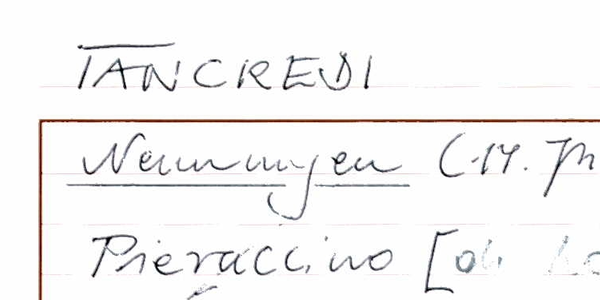 TANCREDI
Nennungen (-14. Jh
Pieraccino [di